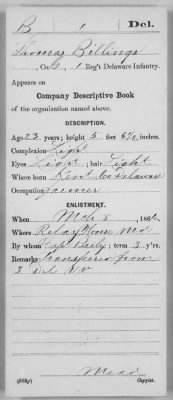 B 1 Del.
Thomas Billings
Co. , 1 Reg't Delaware Infantry.
Appears on
Company Descriptive Book
of the organization named above.
DESCRIPTION.
Age 23 years; height 5 feet 6½ inches.
Complexion Light
Eyes Light ; hair Light
Where born Kent Co Delaware
Occupation Farmer
ENLISTMENT.
When Mch 8 , 186
Where Relay House, Md
By whom Capt Daily ; term 3 y'rs.
Remarks: Transferred from
3 Del
Copyist.